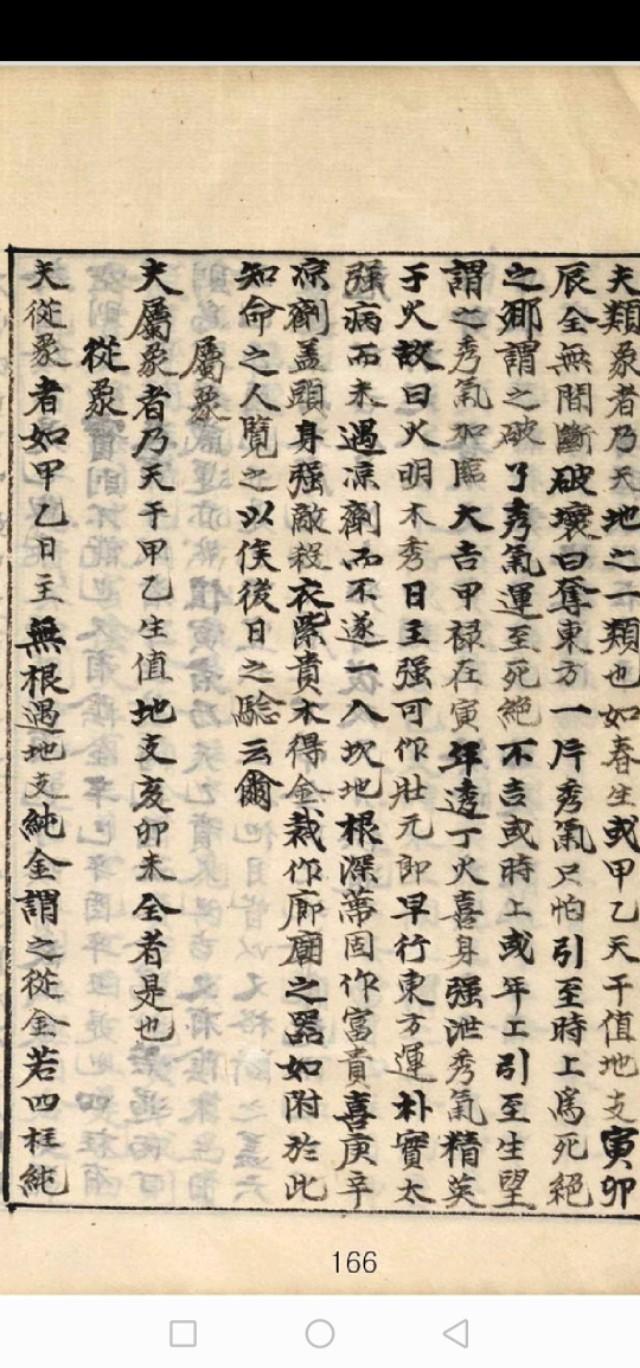 夫類象者乃天地之一類也如春生或甲乙天干值地支寅卯
辰全無間斷破壞曰奪東方一片秀氣只怕引至時上爲死絕
之鄉謂之破了秀氣運至死絕不吉或時上或年上引至生望
謂之秀氣加臨大吉甲禄在寅年透丁火喜身强泄秀氣精英
于火故曰火明木秀日主强可作壯元郎早行東方運朴實太
强病而未遇凉劑而不遂一入坎地根深蒂固作富貴喜庚辛
凉劑盖頭身强敵殺衣紫貴木得金裁作廊廟之器如附於此
知命之人覽之以俟後日之騐云爾
屬象
夫屬象者乃天干甲乙生值地支亥卯未全者是也
從象
夫從象者如甲乙日主無根遇地支純金謂之從金若四柱純
166